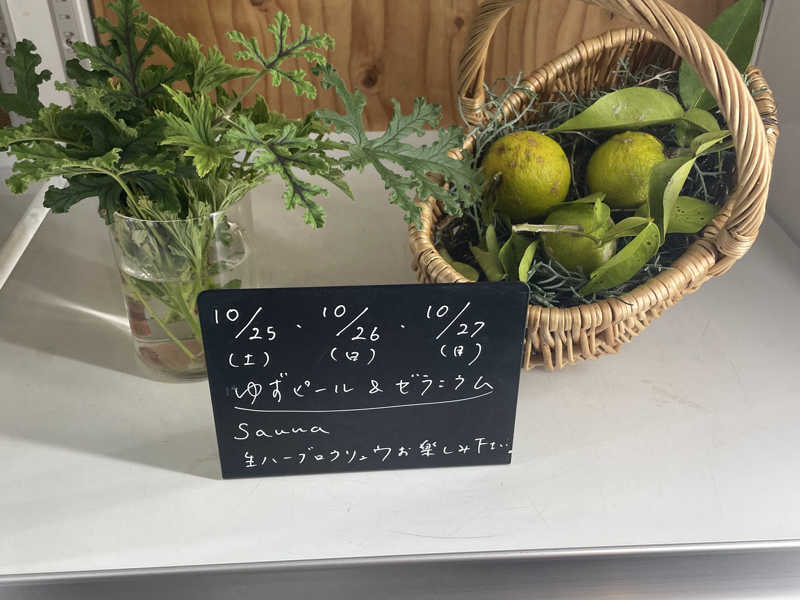 10/25 · 10/26 · 10/27
(土) (日) (月)
ゆずピール & ゼラニウム
Sauna
生ハーブロウリュウお楽しみ下さい。